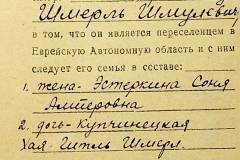 Шмерль Шмулевич
в том, что он является переселенцем в
Еврейскую Автономную область и с ним
следует его семья в составе:
1. жена- Эстеркина Соня
Амперовна
2. дочь- Купчинецкая
Хая Гитль Шмерл.